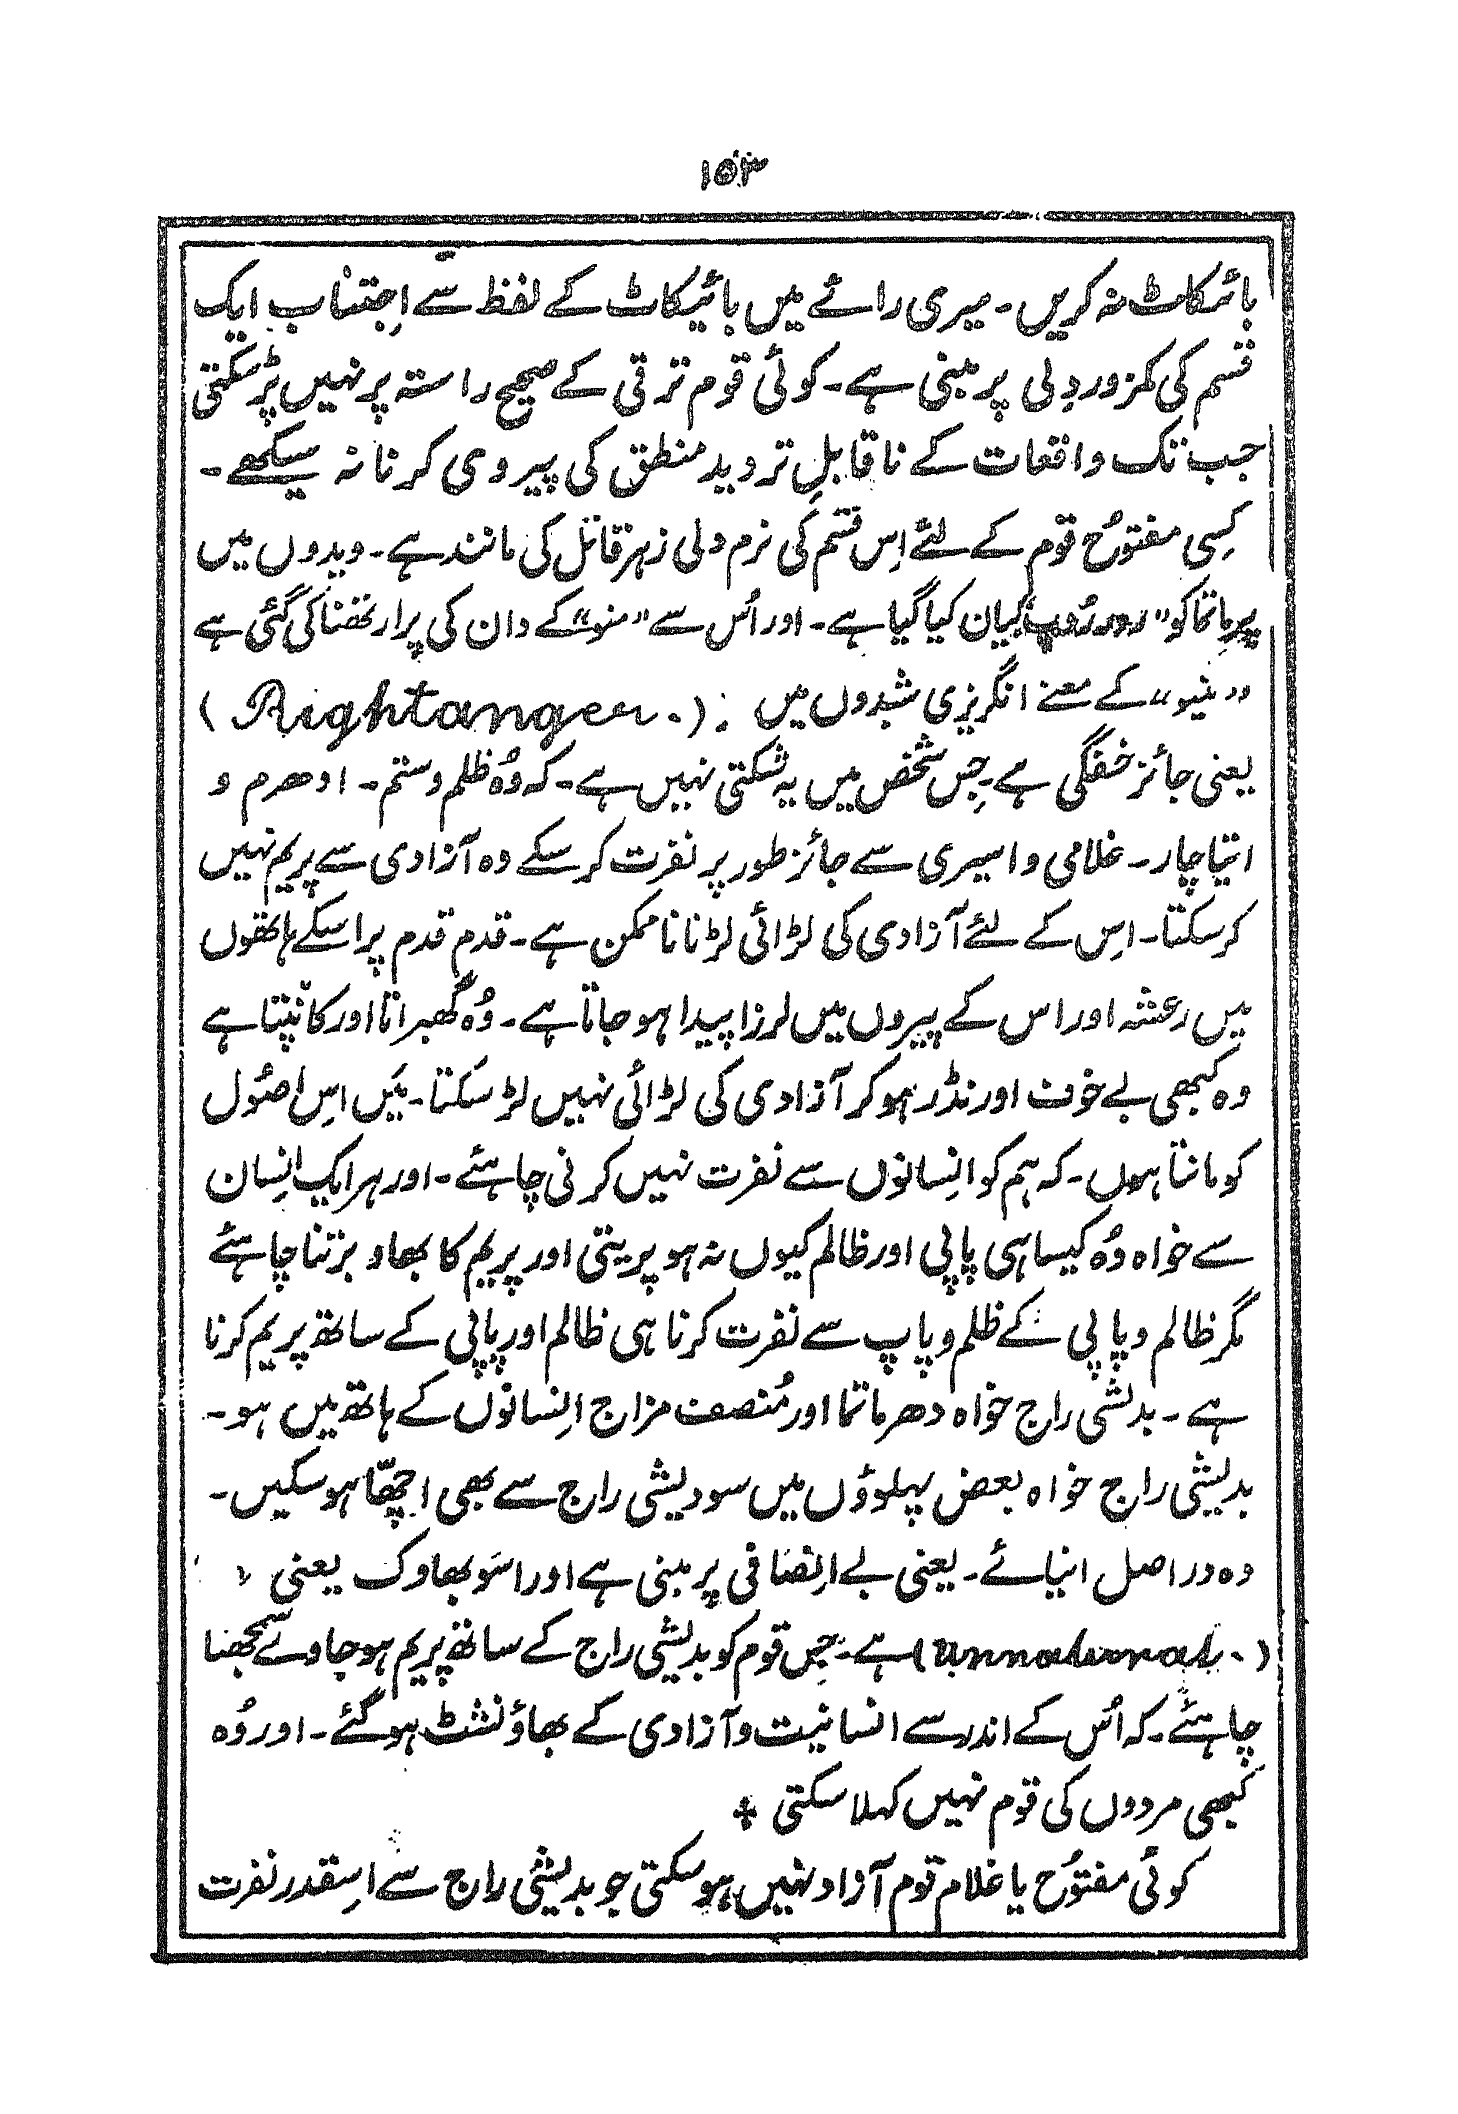 ۱۵۳
بائیکاٹ نہ کریں۔ میری رائے میں بائیکاٹ کے لفظ سے اِجتناب ایک
قسم کی کمزور دِلی پر مبنی ہے۔ کوئی قوم ترقی کے صحیح راستہ پر نہیں پڑ سکتی
جب تک واقعات کے ناقابلِ تردید منطق کی پیروی کرنا نہ سیکھے۔
کِسی مفتوُح قوم کے لئے اِس قسم کی نرم دلی زہر قاتل کی مانند ہے۔ ویدوں میں
پرماتما کو "رودر رُوپ" بیان کیا گیا ہے۔ اور اُس سے "منیو" کے دان کی پرارتھنا کی گئی ہے
"منیو" کے معنے انگریزی شبدوں میں : (Rightanger.)
یعنی جائز خفگی ہے۔ جِس شخص میں یہ شکتی نہیں ہے۔ کہ وُہ ظلم و ستم۔ ادھرم و
اتیاچار۔ غلامی و اسیری سے جائز طور پر نفرت کر سکے وہ آزادی سے پریم نہیں
کر سکتا۔ اِس کے لئے آزادی کی لڑائی لڑنا ناممکن ہے۔ قدم قدم پر اسکے ہاتھوں
میں رعشہ اور اس کے پیروں میں لرزا پیدا ہو جاتا ہے۔ وُہ گھبراتا اور کانپتا ہے
وہ کبھی بے خوف اور نڈر ہو کر آزادی کی لڑائی نہیں لڑ سکتا۔ مَیں اس اصُول
کو مانتا ہوں۔ کہ ہم کو انِسانوں سے نفرت نہیں کرنی چاہئے۔ اور ہر ایک انِسان
سے خواہ وُہ کیسا ہی پاپی اور ظالم کیوں نہ ہو پریتی اور پریم کا بھاو برتنا چاہئے
مگر ظالم و پاپی کے ظلم و پاپ سے نفرت کرنا ہی ظالم اور پاپی کے ساتھ پریم کرنا
ہے۔ بدیشی راج خواہ دھرماتما اور مُنصف مزاج اِنسانوں کے ہاتھ میں ہو۔
بدیشی راج خواہ بعض پہلوؤں میں سودیشی راج سے بھی اچھّا ہو سکیں۔
وہ دراصل انیائے۔ یعنی بے انِصافی پر مبنی ہے اور اسَوبھاوک یعنی
(Unnatural.) ہے۔ جِس قوم کو بدیشی راج کے ساتھ پریم ہو جاوے سمجھنا
چاہئے۔ کہ اُس کے اندر سے انسانیت و آزادی کے بھاؤ نشٹ ہو گئے۔ اور وُہ
کبھی مردوں کی قوم نہیں کہلا سکتی ✤
کوئی مفتوُح یا غلام قوم آزاد نہیں ہو سکتی جو بدیشی راج سے اسِقدر نفرت